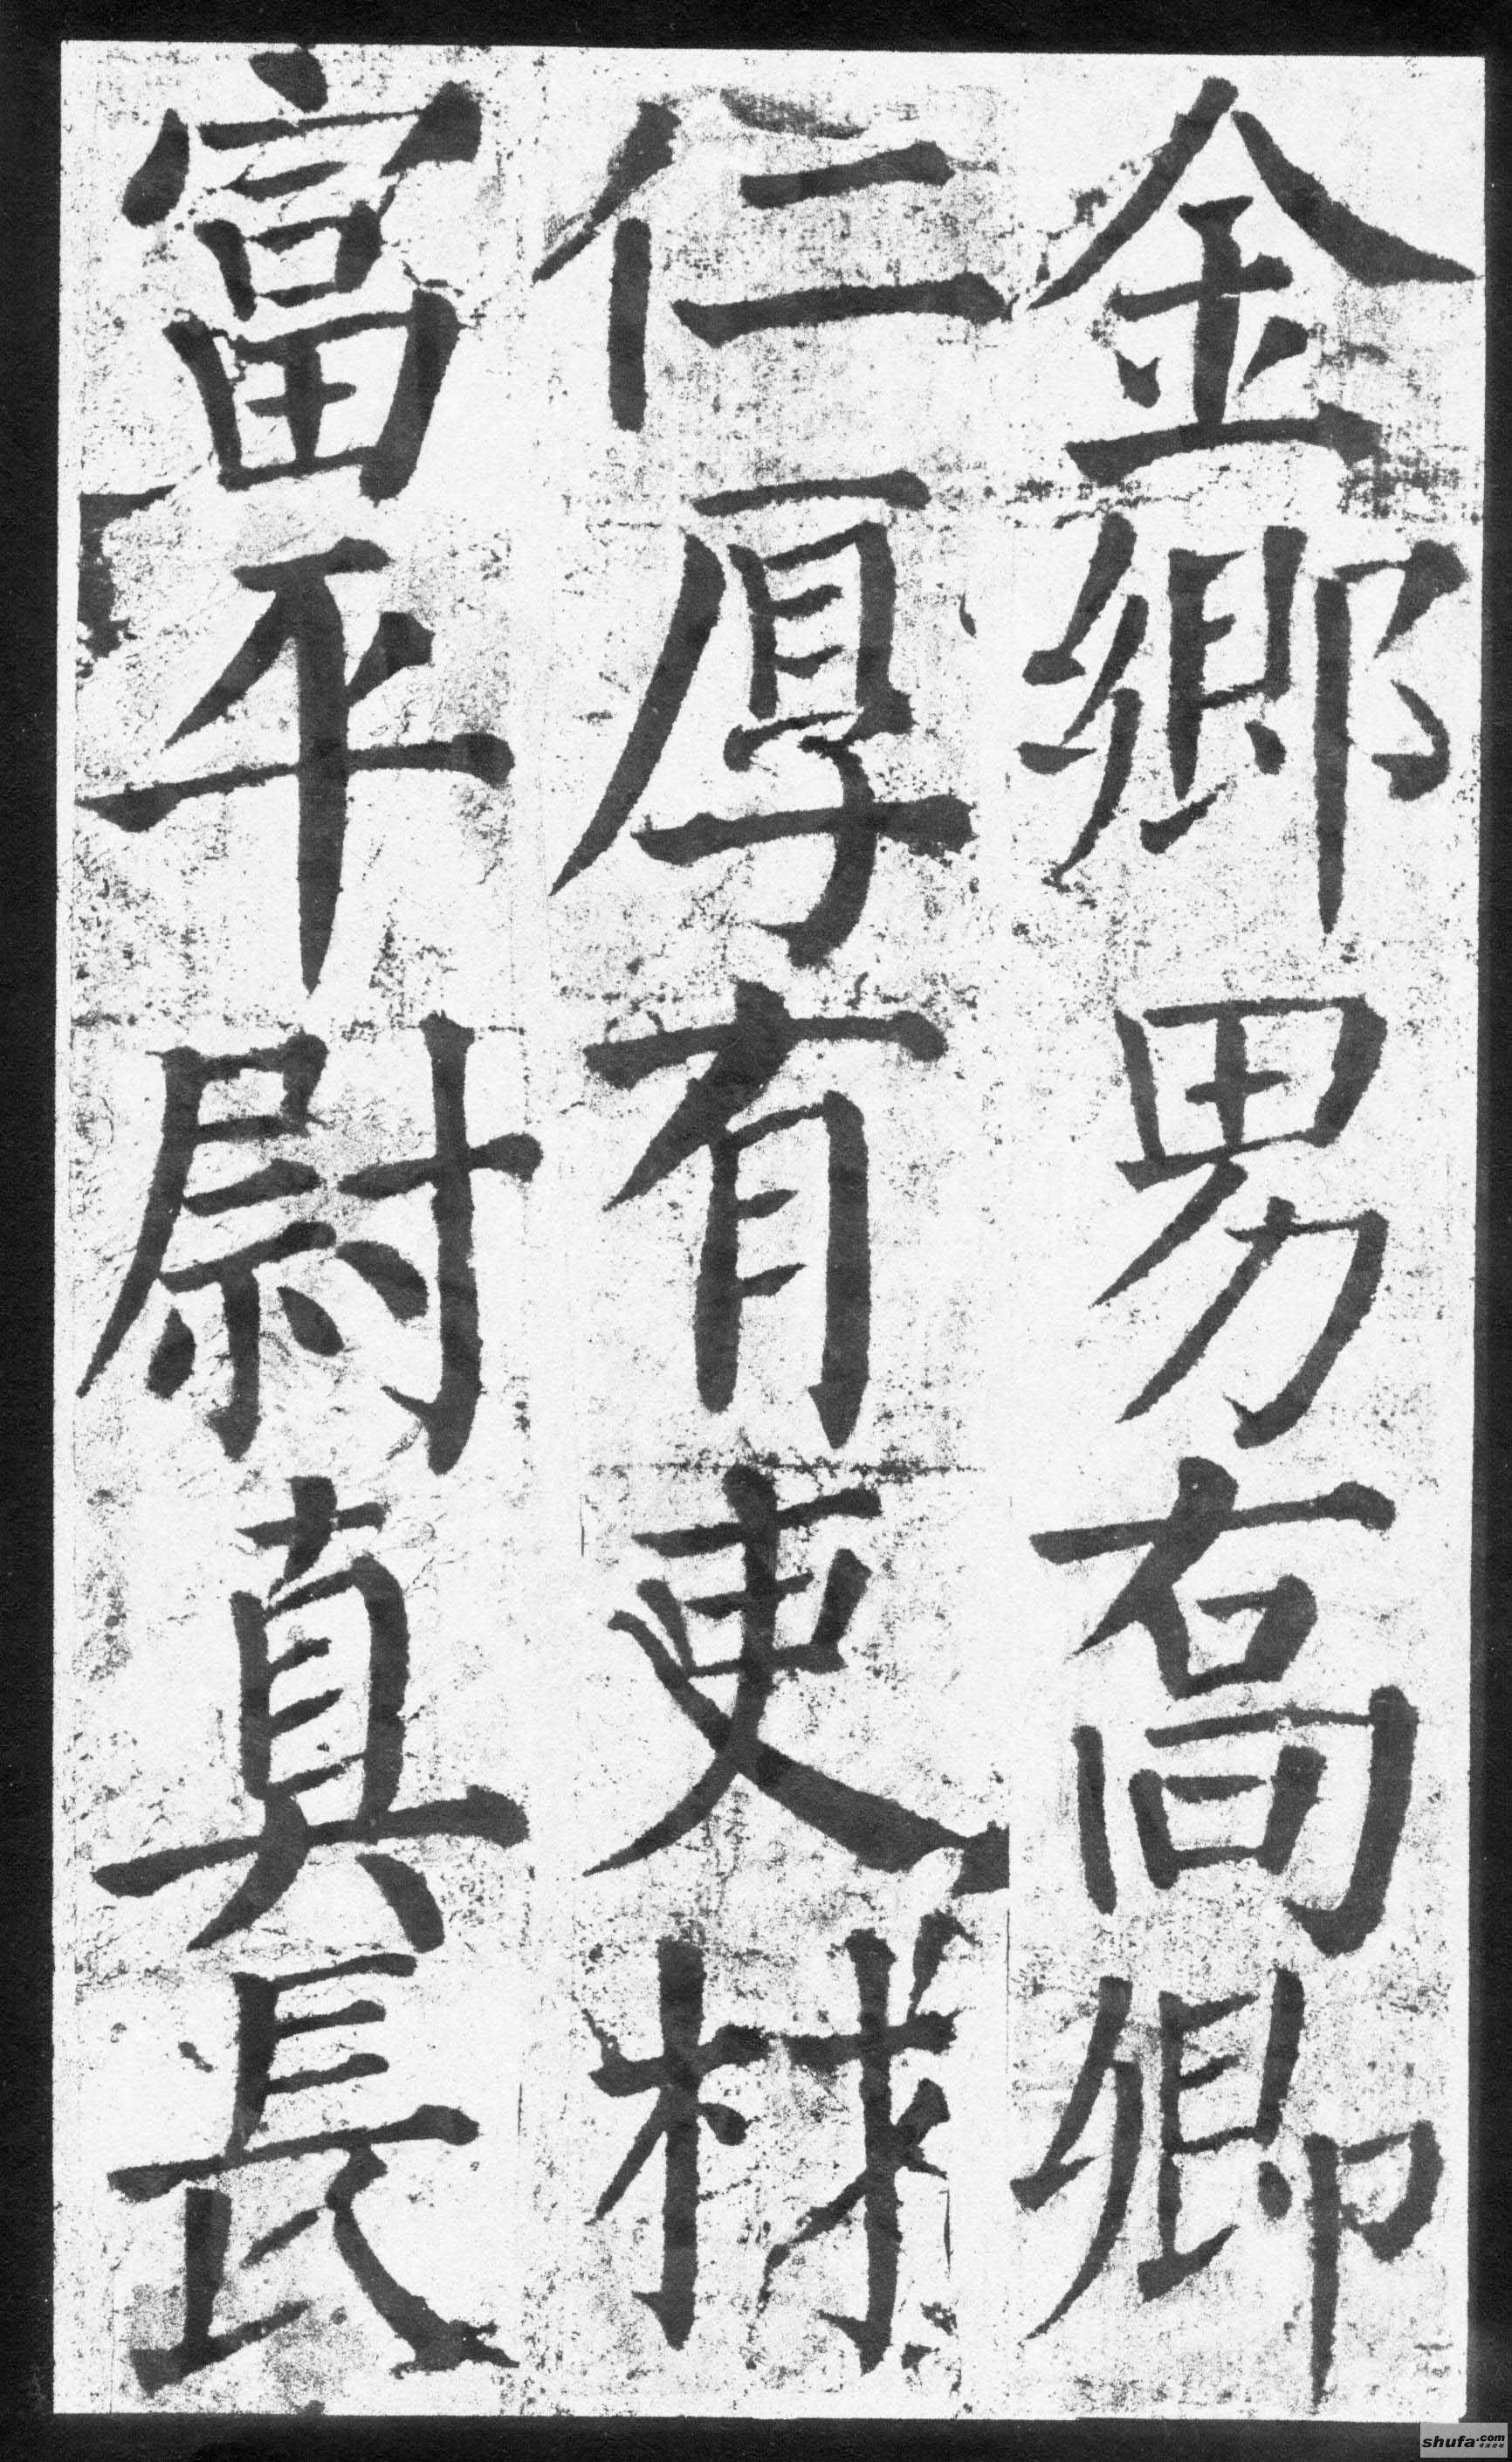 金鄉男喬卿
仁厚有吏材
富平尉真長
shufa.com